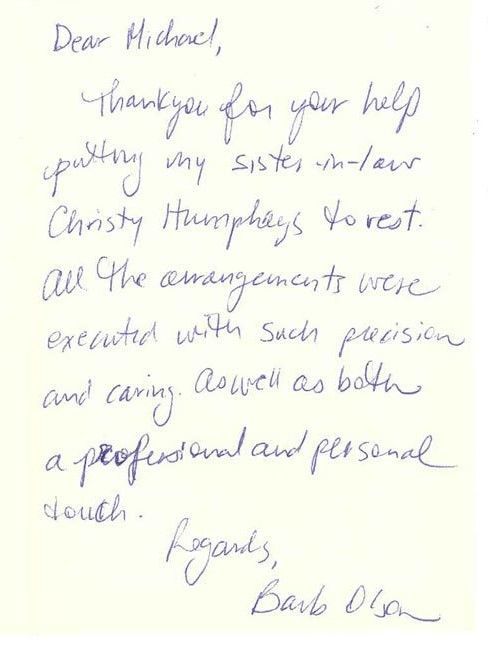 Dear Michael,
Thankyou for your help
putting my sister-in-law
Christy Humphays to rest.
All the arrangements were
executed with such precision
and caring. Aswell as both
a professional and personal
touch.
Regards,
Barb Olson